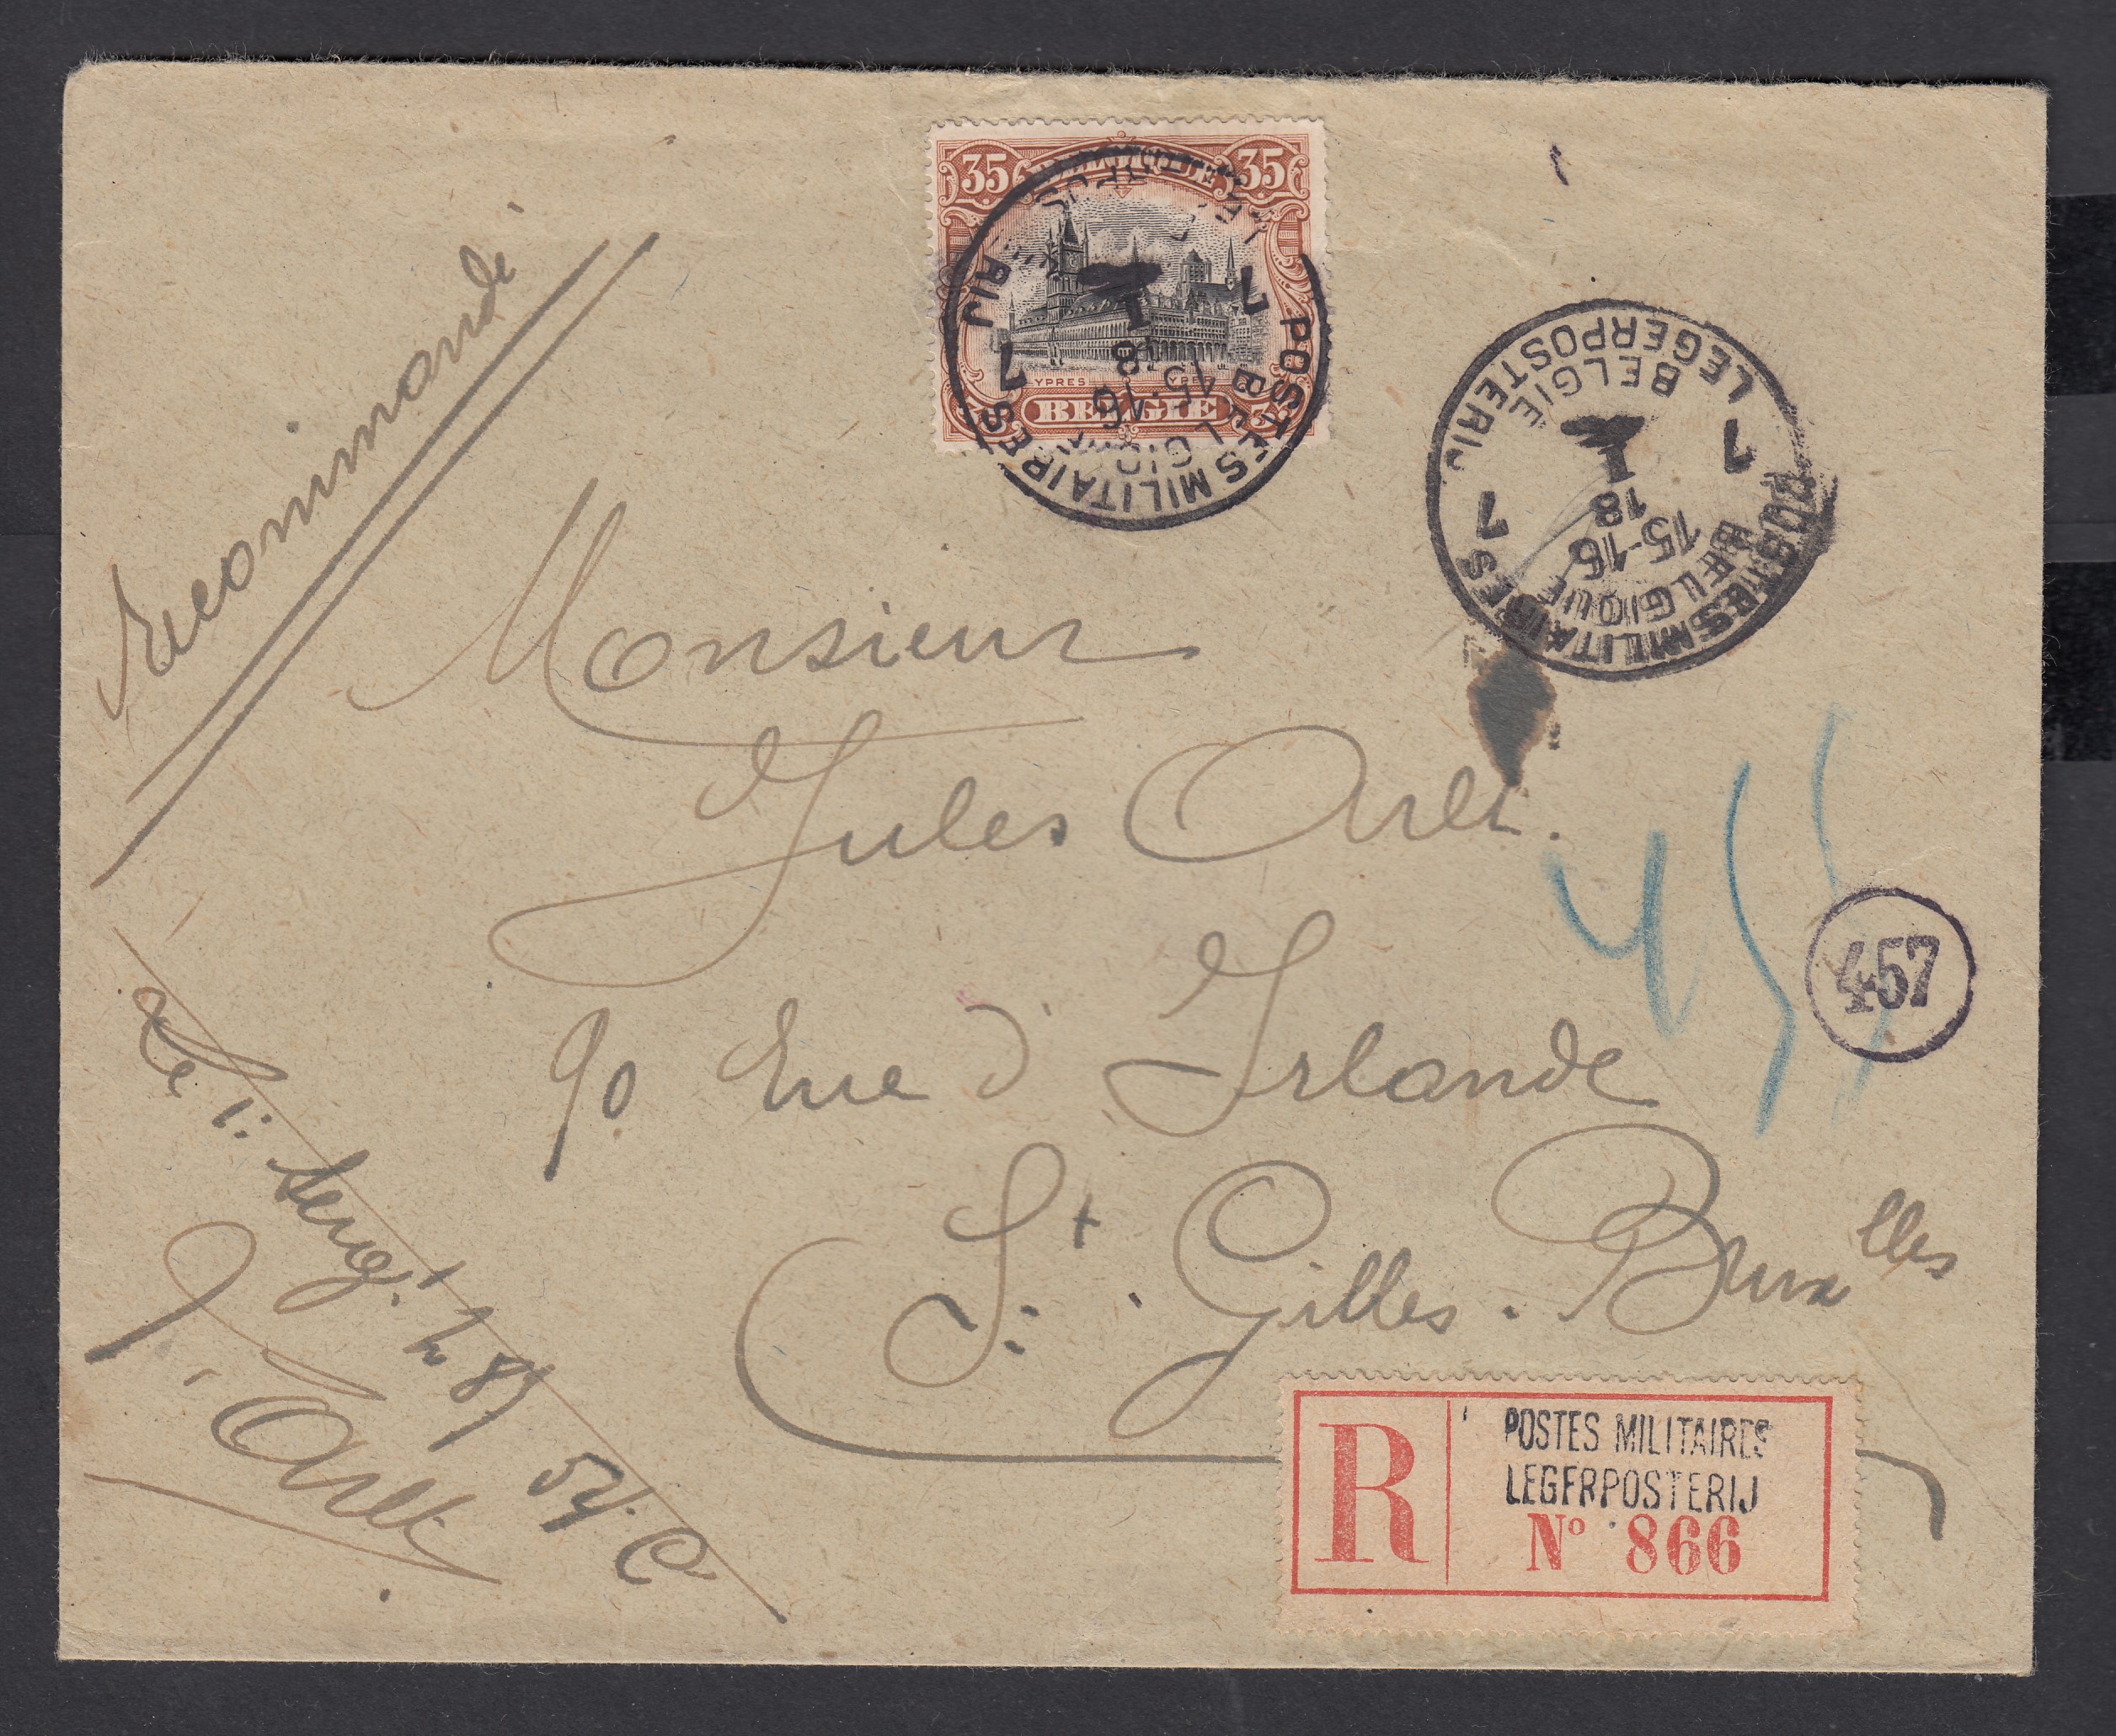 Recommandé
35 35
YPRES
BELGIE
POSTES MILITAIRES
BELGIQUE
7 7
15-16
18
I
RIJ
POSTES MILITAIRES
BELGIQUE
7 7
15-16
18
I
BELGIE
LEGERPOSTERIJ
Monsieur
Jules
90 Rue d'Irlande
St Gilles. Bruxelles
457
Le 1:
J.
R
POSTES MILITAIRES
LEGERPOSTERIJ
No 866